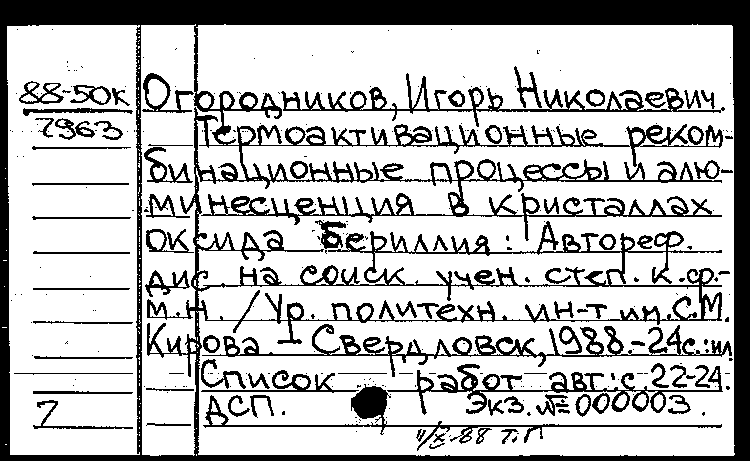 88-50К
7963
Огородников, Игорь Николаевич.
Термоактивационные реком-
бинационные процессы и алю-
минесценция в кристаллах
оксида бериллия: Автореф.
дис. на соиск. учен. степ. к.ф.-
м.н. / Ур. политехн. ин-т им. С.М.
Кирова. - Свердловск, 1988. - 24с.: ил
Список работ авт.: с. 22-24.
7 ДСП. Экз. № 000003.
88 Т.П